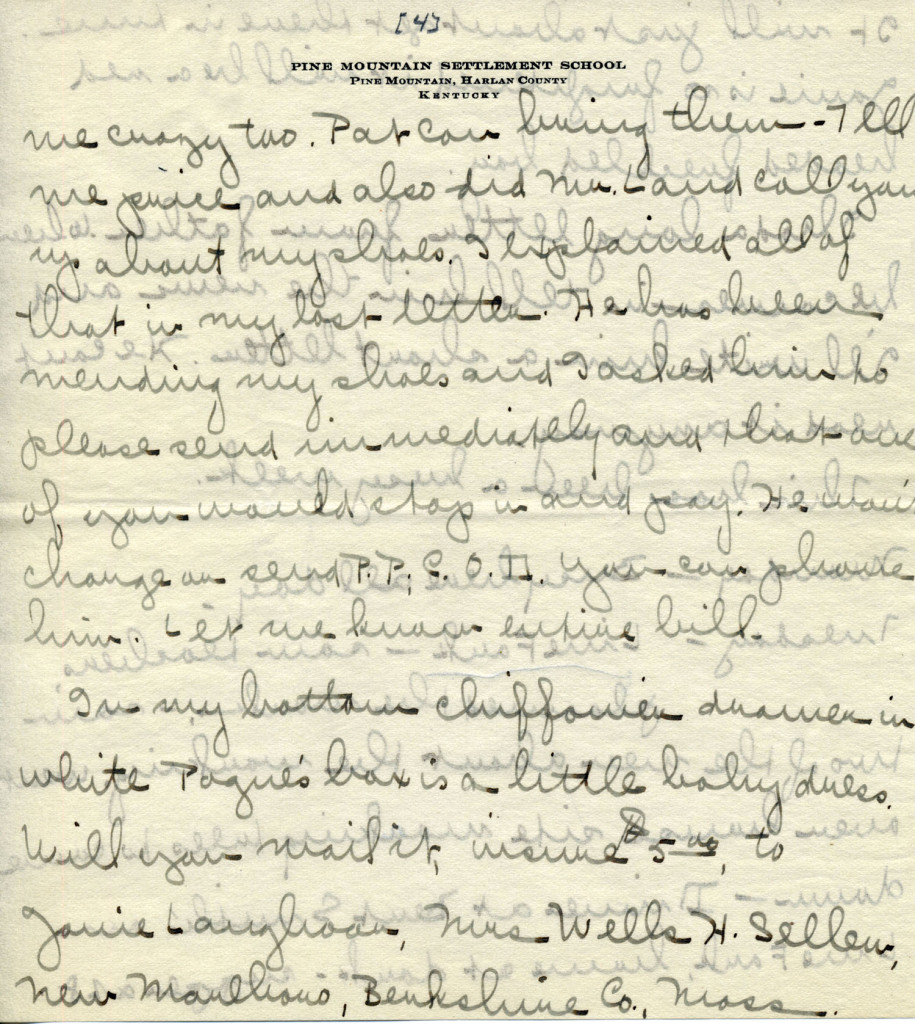 [4]
PINE MOUNTAIN SETTLEMENT SCHOOL
PINE MOUNTAIN, HARLAN COUNTY
KENTUCKY
me crazy too. Pat can bring them - Tell
me price and also did Mr. Land call you
up about my shoes. I explained all of
that in my last letter. He has been
mending my shoes and I asked him to
please send immediately and that one
of you would stop in and pay. He won't
charge or send P.P. C.O.D. You can phone
him. Let me know entire bill.
In my bottom chiffonier drawer in
white Pogue's box is a little baby dress.
Will you mail it, insure $5.00, to
Janie Langhorn, Mrs. Wells H. Sellew,
New Marlboro, Berkshire Co., Mass.